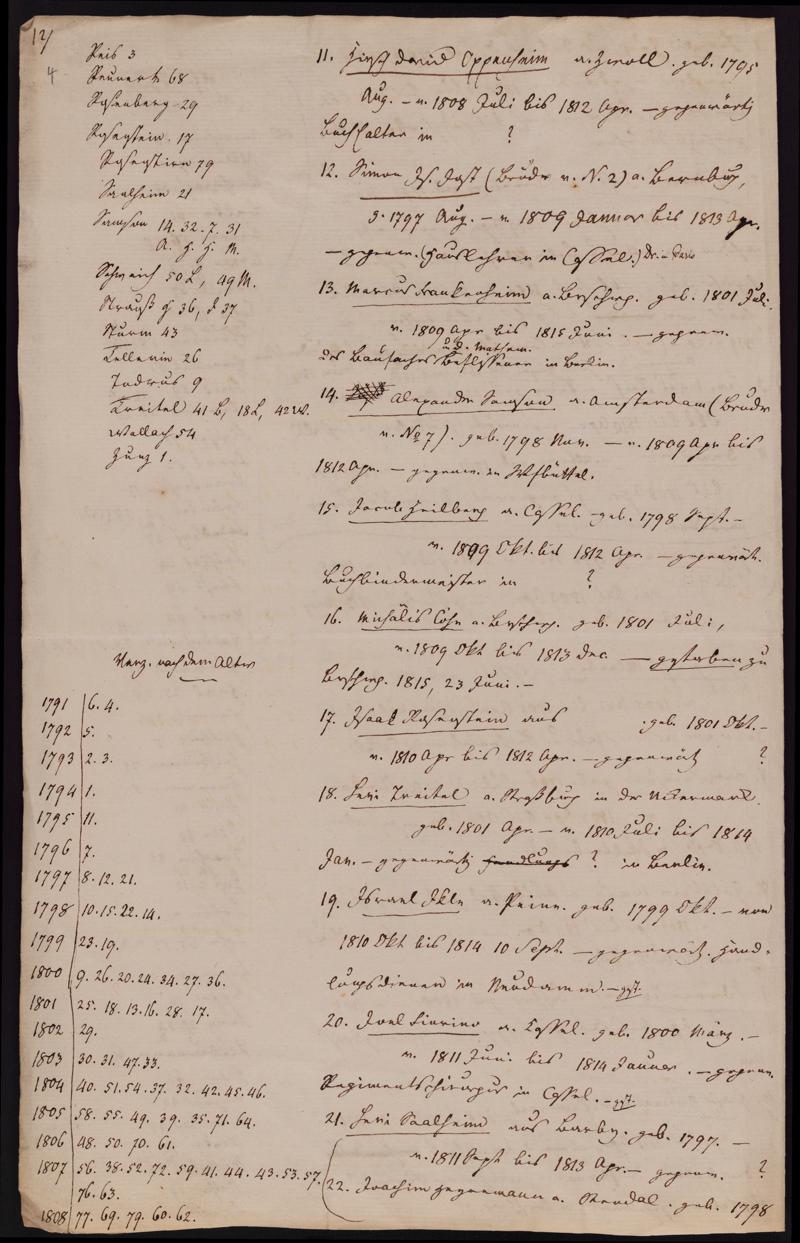 12/
4
Reis 3
Reuvert 68
Rosenberg 29
Rosenstein. 17
Rosenstirn 79
Saalheim 21
Samson 14. 32. 7. 31
A. H. H. M.
Schweich 50 L, 49 M.
Strauß H 36, J 37
Sturm 43
Tellerin 26
Todrus 9
Treitel 41 B, 18 L, 42 W.
Wallach 54
Zunz 1.
Verz. nach dem Alter
1791 6. 4.
1792 5.
1793 2. 3.
1794 1.
1795 11.
1796 7.
1797 8. 12. 21.
1798 10. 15. 22. 14.
1799 23. 19.
1800 9. 26. 20. 24. 34. 27. 36.
1801 25. 18. 13. 16. 28. 17.
1802 29.
1803 30. 31. 47. 33.
1804 40. 51. 54. 37. 32. 42. 45. 46.
1805 58. 55. 49. 39. 35. 71. 64.
1806 48. 50. 70. 61.
1807 56. 38. 52. 72. 59. 41. 44. 43. 53. 57.
76. 63.
1808 77. 69. 79. 60. 62.
11. Hirsch David Oppenheim a. Zwoll. geb. 1795
Aug. – v. 1808 Juli bis 1812 Apr. – gegenwärtig
Buchhalter in ?
12. Simon Is. Jost (Bruder v. N. 2) a. Bernburg,
g. 1797 Aug. – v. 1809 Januar bis 1813 Apr.
– gegenw. (Hauslehrer in Cassel.) Dr. in Paris
13. Marcus Frankenheim a. Brschwg. geb. 1801 Juli.
v. 1809 Apr bis 1815 Juni. – gegenw.
u. d. Mathem.
des Baufaches Beflissener in Berlin.
14. Alexander Samson a. Amsterdam (Bruder
v. No 7). geb. 1798 Nov. – v. 1809 Apr bis
1812 Apr. – gegenw. in Wfbüttel.
15. Jacob Heilberg a. Cassel. geb. 1798 Sept. –
v. 1809 Okt. bis 1812 Apr. – gegenwärt.
Buchbindermeister in ?
16. Michälis Cohn a. Brschwg. geb. 1801 Juli,
v. 1809 Okt bis 1813 Dec. – gestorben zu
Brschwg. 1815, 23 Juni. –
17. Isaak Rosenstein aus geb. 1801 Okt. –
v. 1810 Apr bis 1812 Apr. – gegenwärt ?
18. Levi Treitel a. Straßburg in der Uckermark.
geb. 1801 Apr. – v. 1810 Juli bis 1814
Jan. – gegenwärtig Handlungs ? in Berlin.
19. Israel a. Peine. geb. 1799 Okt. – von
1810 Okt bis 1814 10 Sept. – gegenwärt. Hand-
lungsdiener in Neudamm. – gst.
20. Joel Liorino a. Cassel. geb. 1800 März. –
v. 1811 Juni bis 1814 Januar. – gegenw.
Regimentschirurgus in Cassel. – gst.
21. Levi Saalheim aus Barby. geb. 1797. –
v. 1811 Sept bis 1813 Apr. – gegenw. ?
22. Joachim Hegermann a. Stendal. geb. 1798